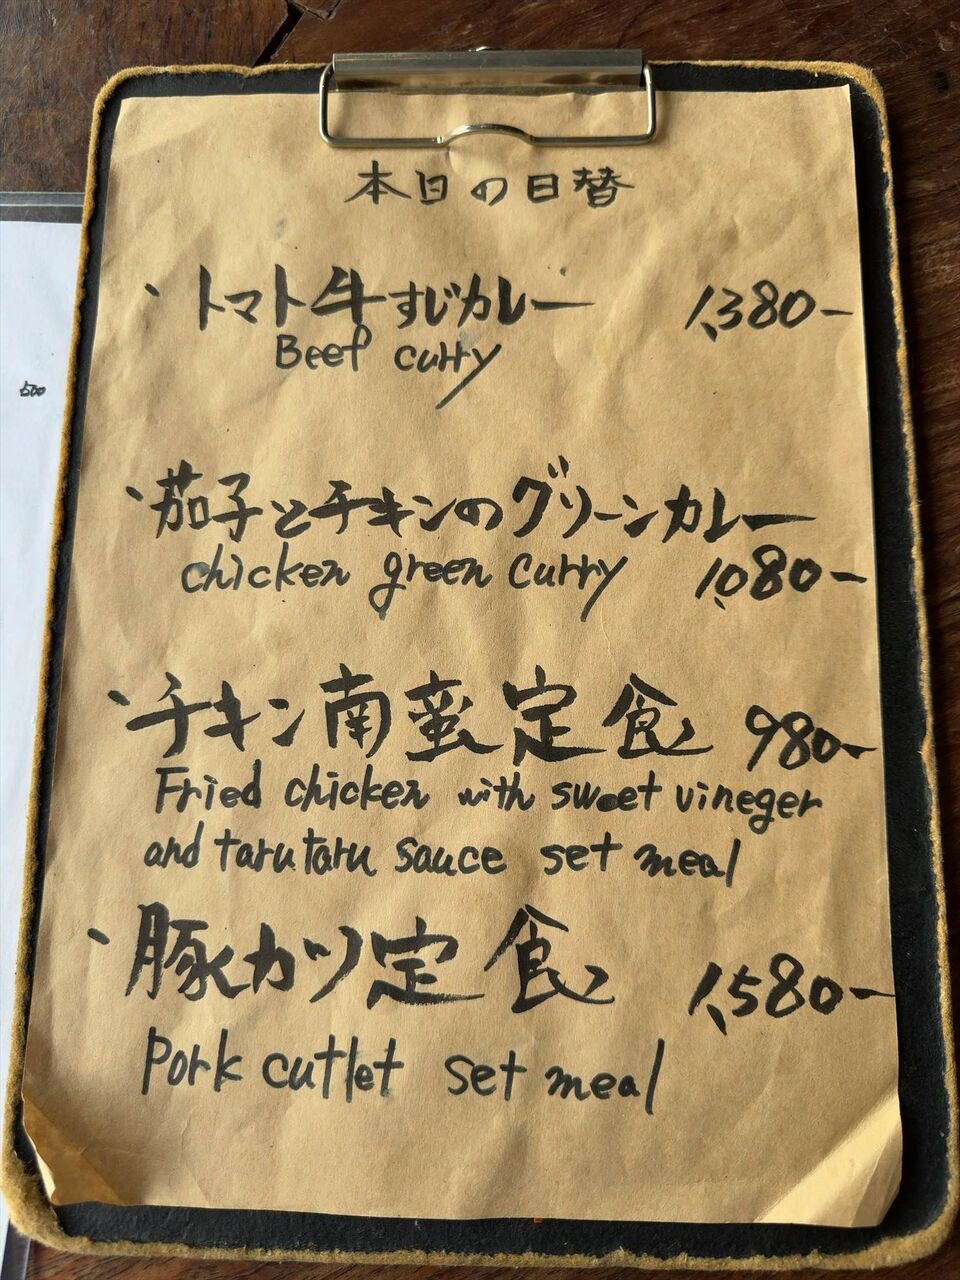 本日の日替
、トマト牛すじカレー 1,380-
Beef curry
、茄子とチキンのグリーンカレー
chicken green curry 1,080-
、チキン南蛮定食 980-
Fried chicken with sweet vineger
and tarutaru sauce set meal
、豚カツ定食 1,580-
Pork cutlet set meal
500